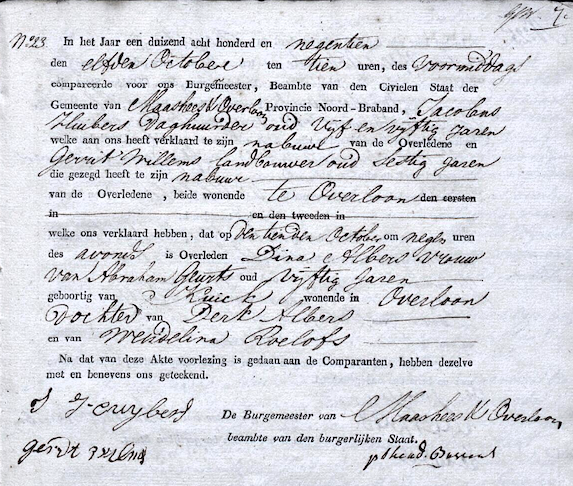 No 23 In het Jaar een duizend acht honderd en negentien
den elfden October ten tien uren, des voormiddags
compareerde voor ons Burgemeester, Beambte van den Civielen Staat der
Gemeente van Maashees & Overloon Provincie Noord-Braband, Jacobus
Huibers Daghuurder oud Vijf en vijftig Jaren
welke aan ons heeft verklaard te zijn nabuur van de Overledene en
Gerrit Willems landbouwer oud Sestig Jaren
die gezegd heeft te zijn nabuur
van de Overledene, beide wonende te Overloon den eersten
in en den tweeden in
welke ons verklaard hebben, dat op den tienden October om negen uren
des avonds is Overleden Dina Albers vrouw
van Abraham Geurts oud vijftig Jaren
geboortig van Kuick wonende in Overloon
Dochter van Derk Albers
en van Wendelina Roelofs
Na dat van deze Akte voorlezing is gedaan aan de Comparanten, hebben dezelve
met en benevens ons geteekend.
De Burgemeester van Maashees & Overloon
beambte van den burgerlijken Staat.
gerrit